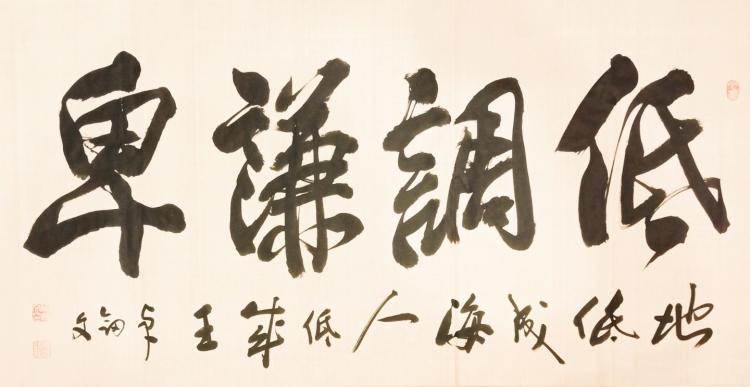 低調謙卑
地低成海人低成王 卓劍文